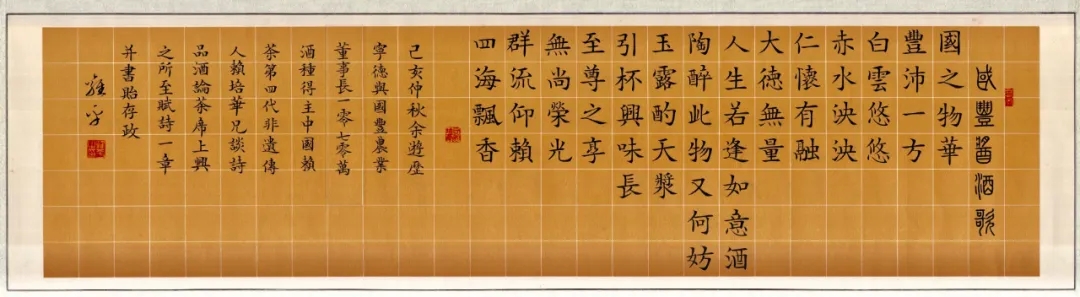 國豐醬酒歌
國之物華
豐沛一方
白雲悠悠
赤水泱泱
仁懷有融
大德無量
人生若逢如意酒
陶醉此物又何妨
玉露酌天漿
引杯興味長
至尊之享
無尚榮光
群流仰賴
四海飄香
己亥仲秋余遊歷
寧德與國豐農業
董事長一零七零萬
酒種得主中國賴
茶第四代非遺傳
人賴培華兄談詩
品酒論茶席上興
之所至賦詩一章
并書貽存政
雍平